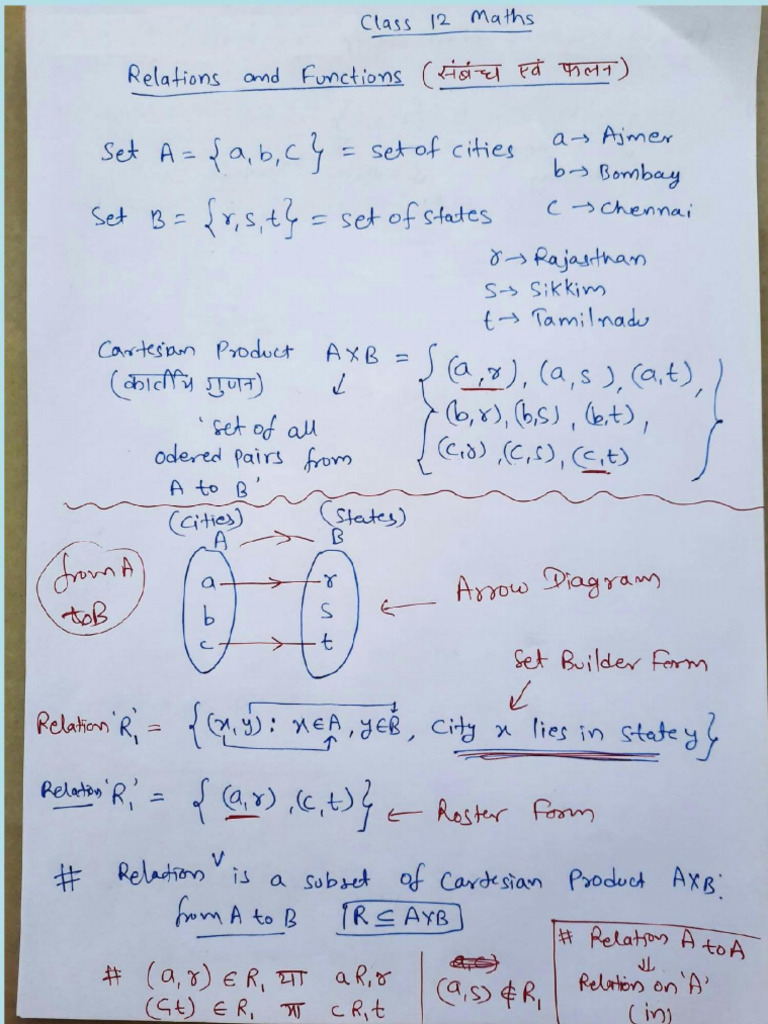 Class 12 Maths
Relations and Functions (संबंन्ध एवं फलन)
Set A = {a, b, c} = set of cities
a → Ajmer
b → Bombay
c → Chennai
Set B = {r, s, t} = set of states
r → Rajasthan
s → Sikkim
t → Tamilnadu
Cartesian Product A×B = { (a, r), (a, s), (a, t),
(कार्तीय गुणन) ↓ (b, r), (b, s), (b, t),
'set of all (c, r), (c, s), (c, t) }
odered pairs from
A to B'
(cities) (states)
A → B
from A
to B
a → r
b s
c → t
← Arrow Diagram
Set Builder Form
Relation 'R₁' = {(x, y) : x ∈ A, y ∈ B, City x lies in state y}
Relation 'R₁' = { (a, r), (c, t)} ← Roster Form
# Relation ∨ is a subset of Cartesian Product A×B.
from A to B R ⊆ A×B
# (a, r) ∈ R₁ या a R₁ r
(c, t) ∈ R₁ या c R₁ t
(a, s) ∉ R₁
# Relation A to A
⇓
Relation on 'A'
(in)